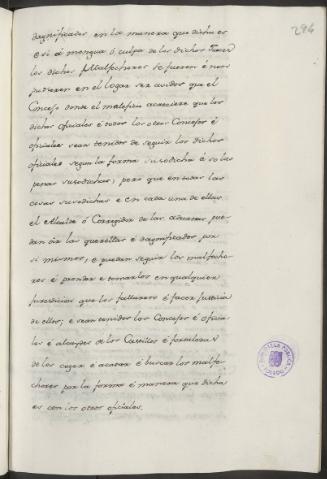 294
dagnificados en la manera que dicha es
e si á mengua ó culpa de los dichos
los dichos Malfechores se fueren é non
pudieren en el logar ser avidos que el
Consejo donde el maleficio acaeciere que los
dichos oficiales é todos los otros Consejos é
oficiales sean tenidos de seguir los dichos
oficiales segun la forma susodicha é so las
penas susodichas; pero que en todas las
cosas susodichas e en cada una de ellas
el Alcalde ó Corregidor de las pue-
dan oir las querellas é dagnificados por
si mismos, e puedan seguir los malfecho-
res é prender e tomarlos en qualquier
jurediccion que los fallaren é facer justicia
de ellos; e sean tenidos los Consejos é oficia-
les é alcaydes de los Castillos é fortalezas
de los coger é acatar é buscar los malfe-
chores por la forma é manera que dicha
es con los otros oficiales.